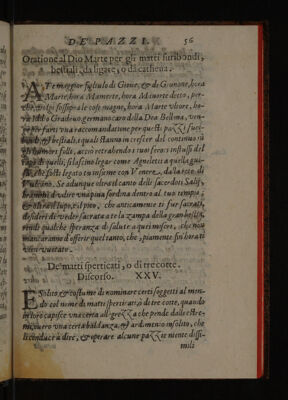 DE PAZZI. 56
Oratione al Dio Marte per gli matti furibondi,
bestiali, da ligare, o da cathena.
A Te maggior figliuolo di Gioue, & di Giunone, hora
Marte, hora Mamorte, hora
che suol gli fossi padre cose magne, hora Marte vltore, ho
ra lodo Gradiuo, germano caro della Dea Bellona, ven
go per farti vna raccomandatione per questi pazzi furi-
bondi, & bestiali, i quali stanno in crescer del continuo ne
humori folli, acciò retrahendo i tuoi feroci influssi del
capo di quelli, si lascino legar come Agneletti a quella gui
sa, che fosti legato tu insieme con Venere, da la rete di
Vulcano. Se adunque oltra il canto delle sacerdoti Salij
brami di vdire vna pia fordina dentro al tuo tempio;
& oltra il lupo, e il pico, che anticamente ti fur sacrati,
desideri di veder sacrata a te la zampa della gran bestia,
rendi qualche speranza di salute a questi messeri, che non
mancaranno d'offerir quel tanto, che piamente sin hora ti
hauer vuotato.
De' matti sperticati, o di tre cotte.
Discorso. XXV.
E Solito, & costume di nominare certi soggetti al mon-
do col nome di matti sperticati, o di tre cotte, quando
in loro capisce vna certa allegrezza che pende dalle estre-
mo, ouero vna certa baldanza, & ardimento insolito, che
li conduce a dire, & operare alcune pazzie niente dissi-
mili